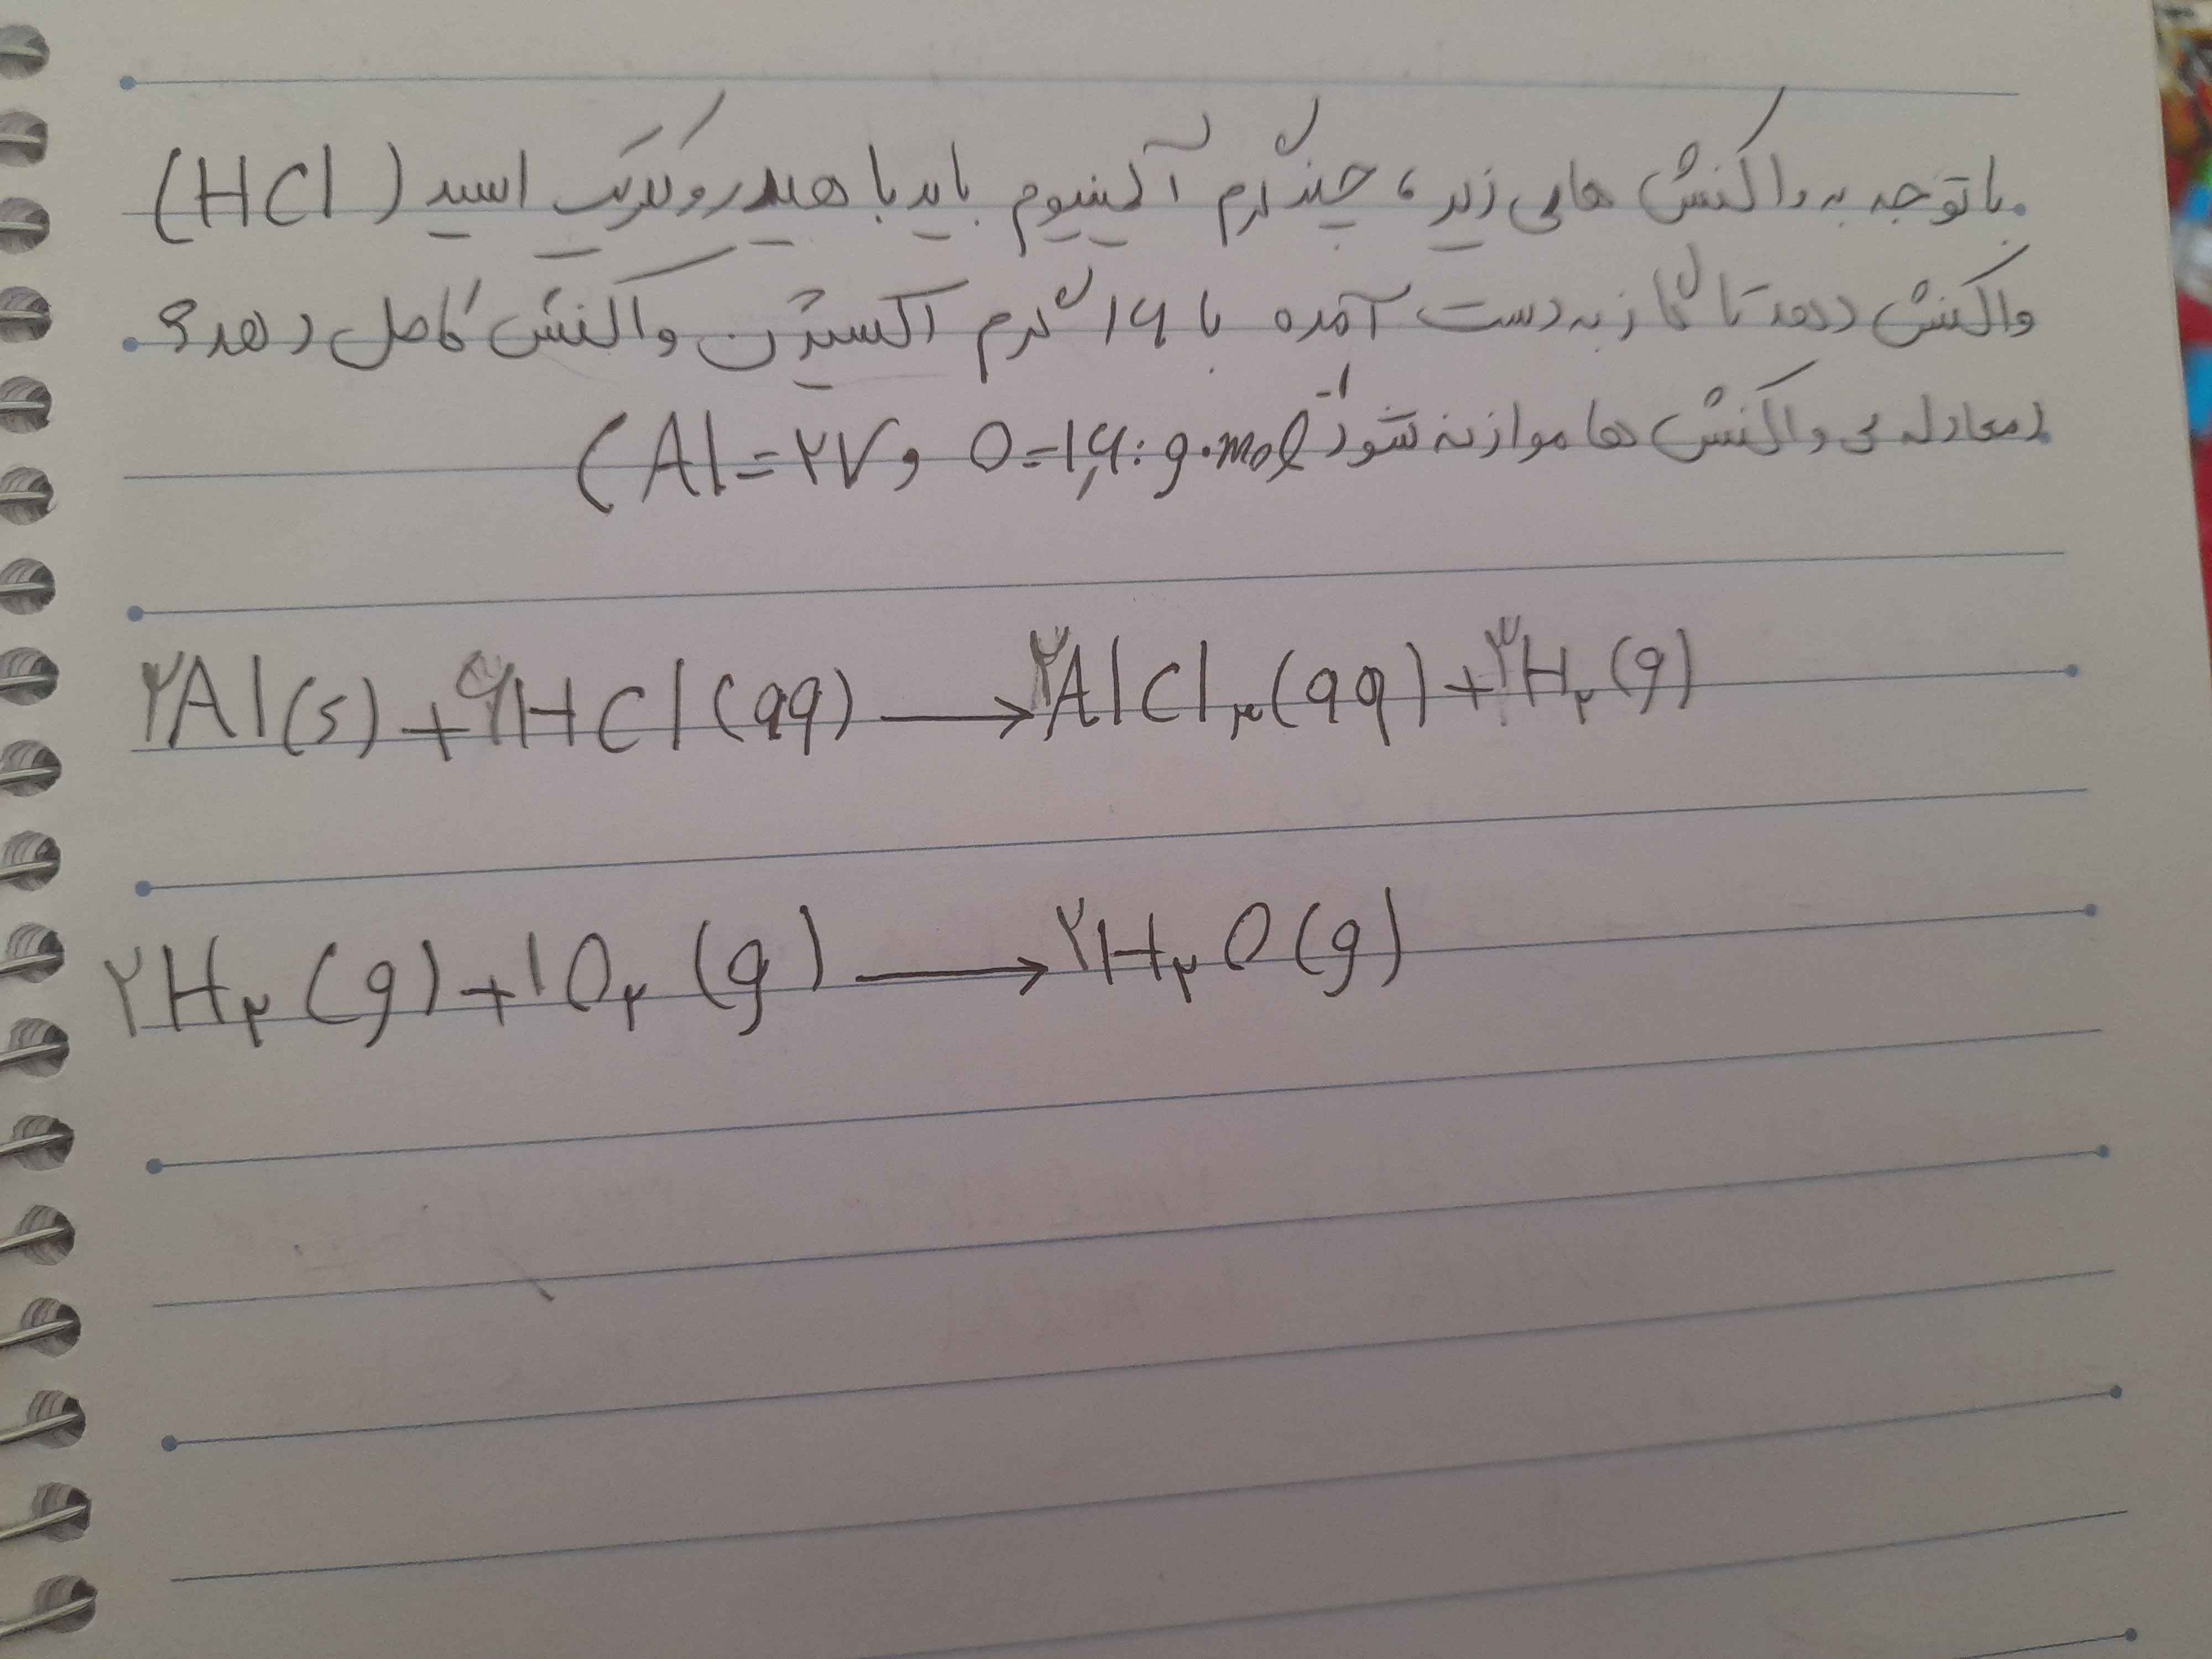 باتوجه به واکنش های زیر، چندگرم آلمینیوم باید با هیدروکلریک اسید (HCl)
واکنش دهد تا گاز به دست آمده با ۱۶ گرم اکسیژن واکنش کامل دهد؟
(معادله ی واکنش ها موازنه شود O=۱۶: g.mol⁻¹ و Al=۲۷)
۲Al(s) + ۶HCl(aq) → ۲AlCl₃(aq) + ۳H₂(g)
۲H₂(g) + ۱O₂(g) → ۲H₂O(g)